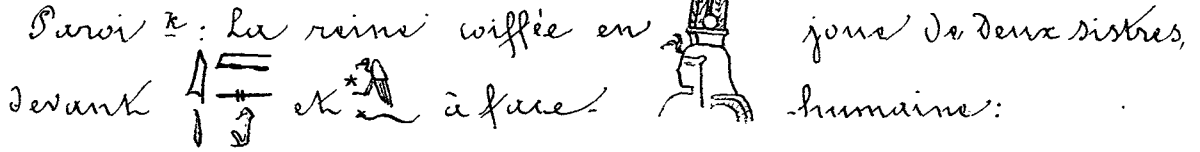 Paroi k : La reine coiffée en joue de deux sistres,
devant et à face humaine :